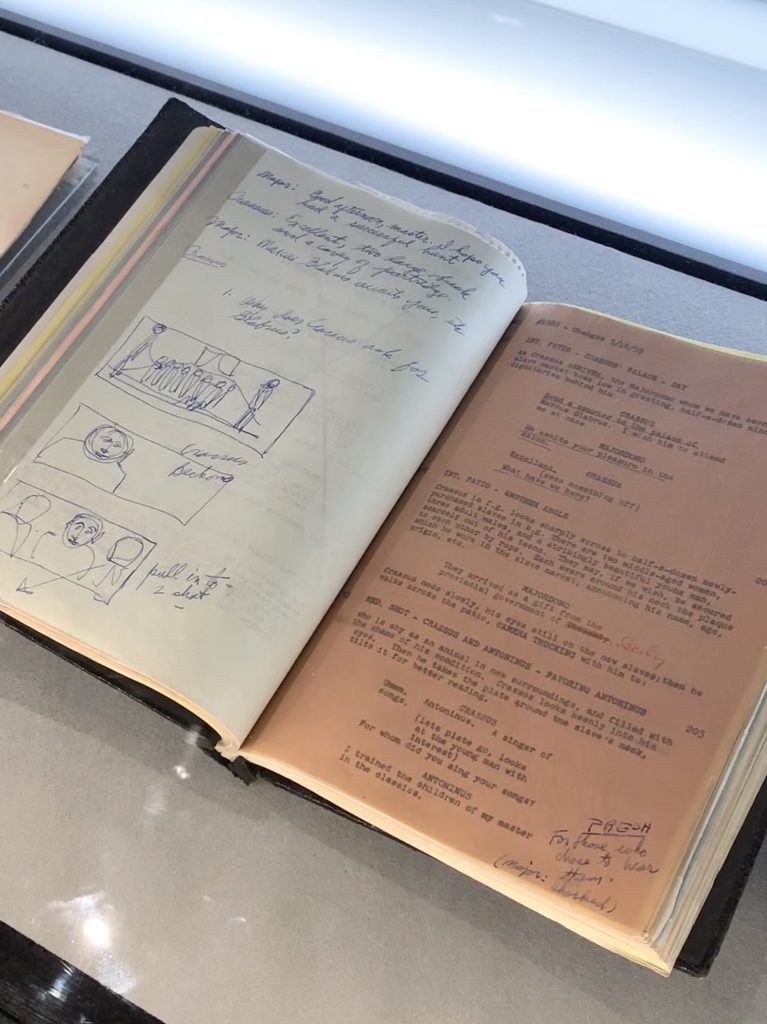 Major: Good afternoon, master. I hope you
had a successful hunt
Crassus: Excellent, two large buck
and a covey of partridge.
Major: Marcus Glabrus awaits you, in
Crassus
1. Why does Crassus ask for
Glabrus?
Crassus
Beckons
pull in to
2 shot
Changes
INT. PATIO - CRASSUS' PALACE - DAY
As Crassus ARRIVES, the Majordomo whom we have seen
slave market bows low in greeting, half-a-dozen
dignitaries behind him.
CRASSUS
Send a courier to the palace of
Marcus Glabrus. I wish him to attend
me at once
MAJORDOMO
He awaits your pleasure in the
salon.
CRASSUS
Excellent.
(sees something off)
What have we here?
INT. PATIO - ANOTHER ANGLE
Crassus in f.g. looks sharply across to half-a-dozen newly-
purchased slaves in b.g. There are two middle-aged women,
three adult males, and a strikingly beautiful young man,
scarcely out of his teens. They may, if we wish, be secured
to each other by rope. Each wears around his neck the plaque
which he wore in the slave market, announcing his name, age,
origin, etc.
MAJORDOMO
They arrived as a gift from the
provincial government of Sicily
Crassus nods slowly, his eyes still on the new slaves; then he
walks across the patio, CAMERA TRUCKING with him to:
MED. SHOT - CRASSUS AND ANTONINUS - FAVORING ANTONINUS 203
who is shy as an animal in new surroundings, and filled with
the shame of his condition. Crassus looks keenly into his
eyes. Then he takes the plate around the slave's neck,
tilts it for better reading.
CRASSUS
Ummm. Antoninus. A singer of
songs.
(lets plate go, looks
at the young man with
interest)
For whom did you sing your songs?
ANTONINUS
I trained the children of my master
in the classics.
FRESH
For those who
chose to hear
them.
(Major: shocked)